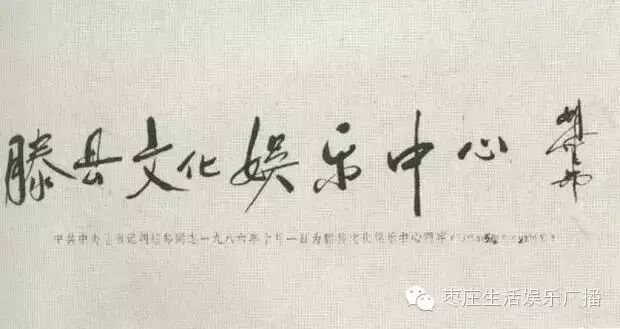 滕县文化娱乐中心
中共中央总书记胡耀邦同志一九八六年 月一日为滕县文化娱乐中心题字
枣庄生活娱乐广播